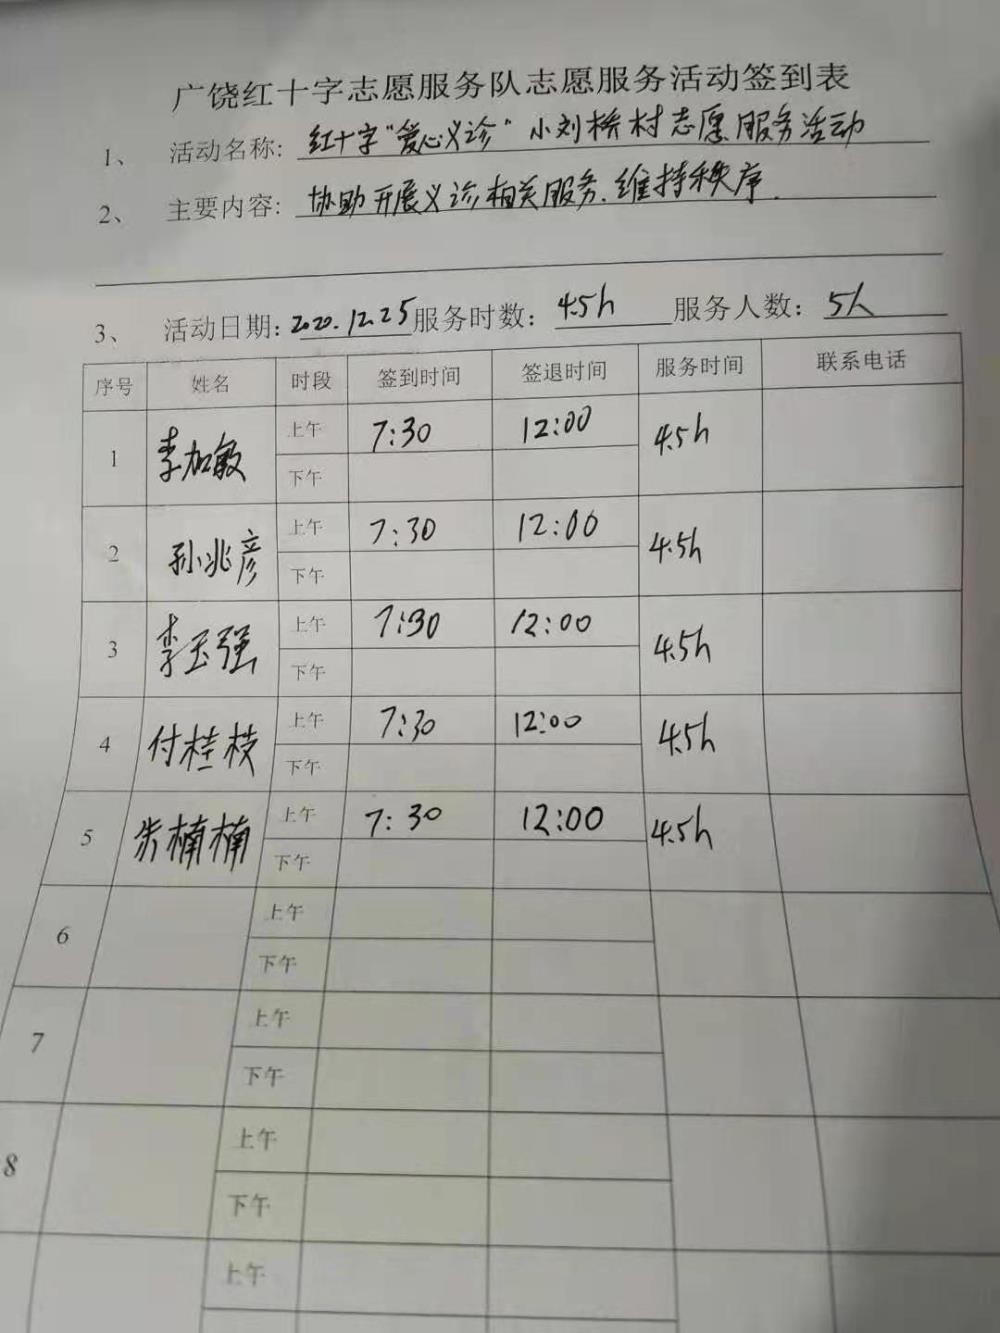 广饶红十字志愿服务队志愿服务活动签到表
1、 活动名称: 红十字“爱心义诊”小刘桥村志愿服务活动
2、 主要内容: 协助开展义诊相关服务.维持秩序.
3、 活动日期: 2020.12.25 服务时数: 4.5h 服务人数: 5人
序号 姓名 时段 签到时间 签退时间 服务时间 联系电话
1 李加敏 上午 7:30 12:00 4.5h
下午
2 孙兆彦 上午 7:30 12:00 4.5h
下午
3 李玉强 上午 7:30 12:00 4.5h
下午
4 付桂枝 上午 7:30 12:00 4.5h
下午
5 朱楠楠 上午 7:30 12:00 4.5h
下午
6 上午
下午
7 上午
下午
8 上午
下午
上午